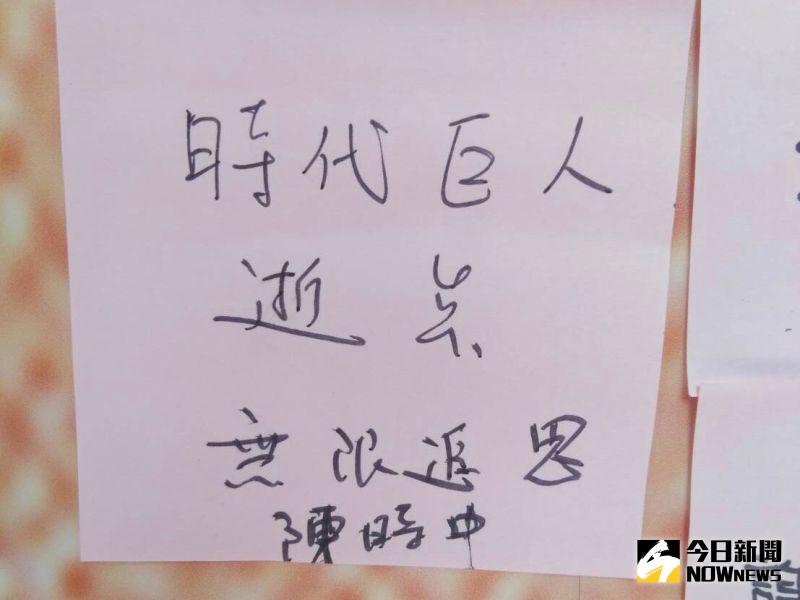 時代巨人
逝去
無限追思
陳時中
今日新聞
NOWNEWS